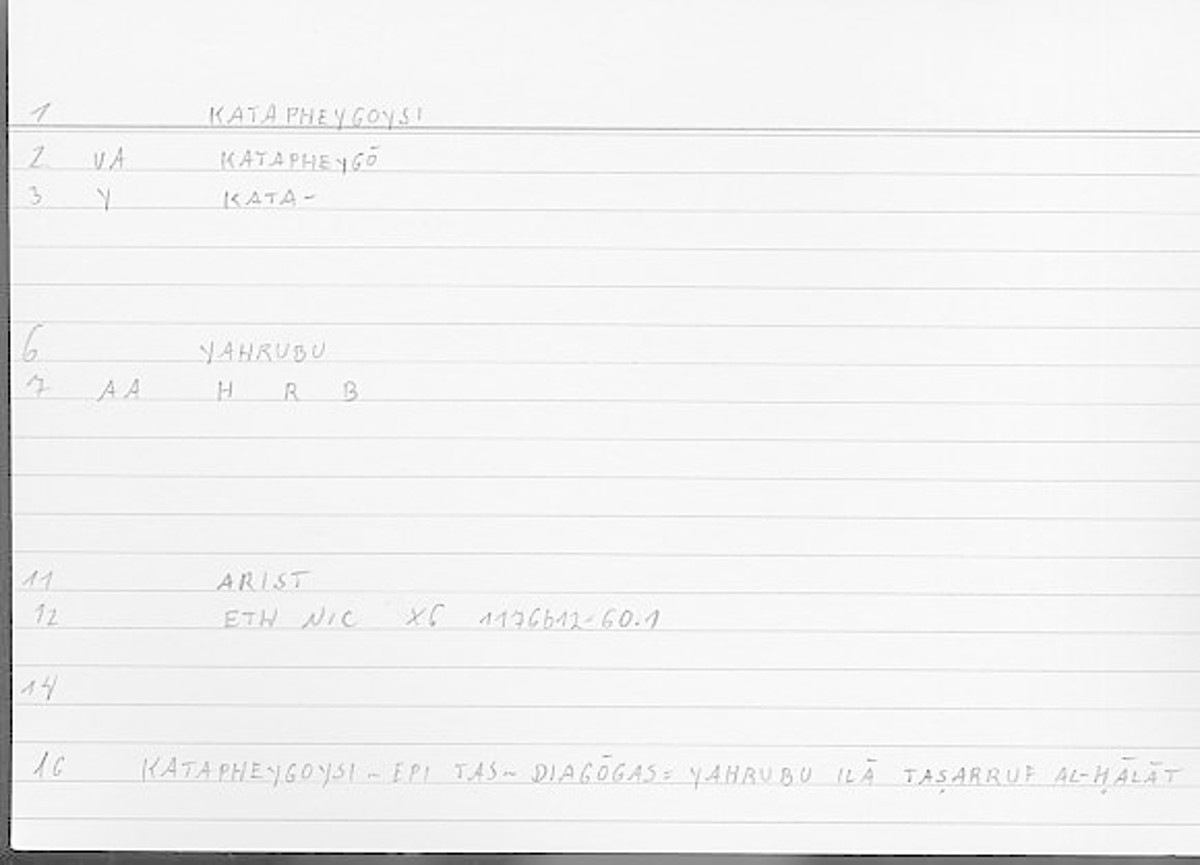 1 KATAPHEYGOYSI
2 VA KATAPHEYGŌ
3 Y KATA-
6 YAHRUBU
7 AA H R B
11 ARIST
12 ETH NIC X6 1176b12-60.1
14
16 KATAPHEYGOYSI ~ EPI TAS ~ DIAGŌGAS = YAHRUBU ILĀ TAṢARRUF AL-ḤĀLĀT